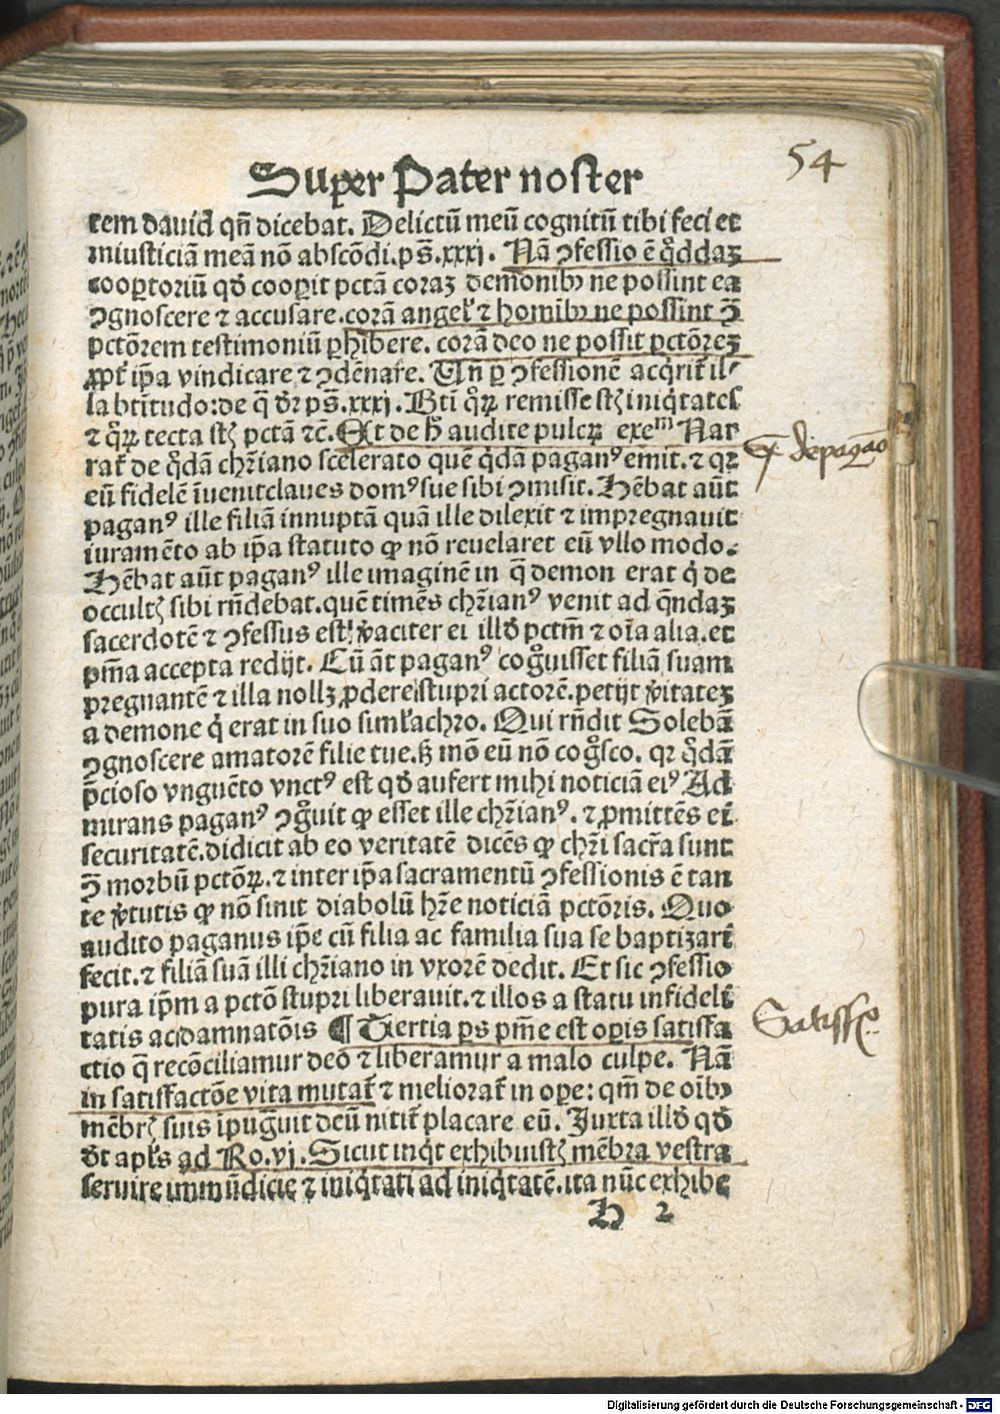 54
Super Pater noster
tem dauid qñ dicebat. Delictū meū cognitū tibi feci et
iniusticiā meā nō abscōdi.ps̄.xxxj. Nā ꝯfessio ē q̇ddaꝫ
cooꝑtoriū qđ cooꝑit pctā coraꝫ demonibꝰ ne possint ea
ꝯgnoscere ⁊ accusare.corā angel̕ ⁊ homībꝰ ne possint ꝯ̄
pctōrem testimoniū ꝑhibere. corā deo ne possit pctōreꝫ
ꝓpt̕ ip̄a vindicare ⁊ ꝯdēnare. Uñ ꝑ ꝯfessionē acq̇rit̕ il⸗
la btītudo:de q̄ dr̄ ps̄.xxxj. Bti̅ qꝝ remisse st̄ iniq̇tates
⁊ qꝝ tecta st̄ pctā ⁊c̄. Et de h̄ audite pulcꝝ exeᵐ Nar
rat̕ de q̇dā chr̄iano scelerato quē q̇dā paganꝰ emit. ⁊ qꝛ
eū fidelē īuenit claues domꝰ sue sibi ꝯmisit. Hēbat aūt
paganꝰ ille filiā innuptā quā ille dilexit ⁊ impregnauit
iuramēto ab ip̄a statuto ꝙ nō reuelaret eū vllo modo.
Hēbat aūt paganꝰ ille imaginē in q̄ demon erat q̇ de
occultꝭ sibi rn̄debat.quē timēs chr̄ianꝰ venit ad q̄ndaꝫ
sacerdotē ⁊ ꝯfessus est v̄aciter ei illđ pctm̄ ⁊ oīa alia.et
pn̄ia accepta redijt. Cū āt paganꝰ cog̊uisset filiā suam
pregnantē ⁊ illa nollꝫ ꝓdere stupri actorē.petijt v̄itateꝫ
a demone q̇ erat in suo siml̕achro. Qui rn̄dit Solebā
ꝯgnoscere amatorē filie tue.sꝫ mō eū nō cog̊sco. qꝛ q̇dā
p̄cioso vnguēto vnctꝰ est qđ aufert mihi noticiā eiꝰ Ad
mirans paganꝰ ꝯg̊uit ꝙ esset ille chr̄ianꝰ. ⁊ ꝓmittēs ei
securitatē.didicit ab eo veritatē dicēs ꝙ chr̄i sacr̄a sunt
ꝯ̄ morbū pctōꝝ.⁊ inter ip̄a sacramentū ꝯfessionis ē tan
te v̄tutis ꝙ nō sinit diabolū hr̄e noticiā pctōris. Quo
audito paganus ip̄e cū filia ac familia sua se baptizari
fecit.⁊ filiā suā illi chr̄iano in vxorē dedit. Et sic ꝯfessio
pura ip̄m a pctō stupri liberauit.⁊ illos a statu infideli
tatis ac damnatōis ¶ Tertia ps pn̄ie est oꝑis satisfa
ctio q̄ recōciliamur deo ⁊ liberamur a malo culpe. Nā
in satisfactōe vita mutat̕ ⁊ meliorat̕ in oꝑe: qm̄ de oībꝰ
mēbrꝭ suis īpug̊uit deū nitit̕ placare eū. Juxta illđ qđ
dt̄ apl̕s ad Ro.vj. Sicut inq̇t exhibuistꝭ mēbra vestra
seruire immūdicie ⁊ iniq̇tati ad iniq̇tatē.ita nūc exhibe
H 2